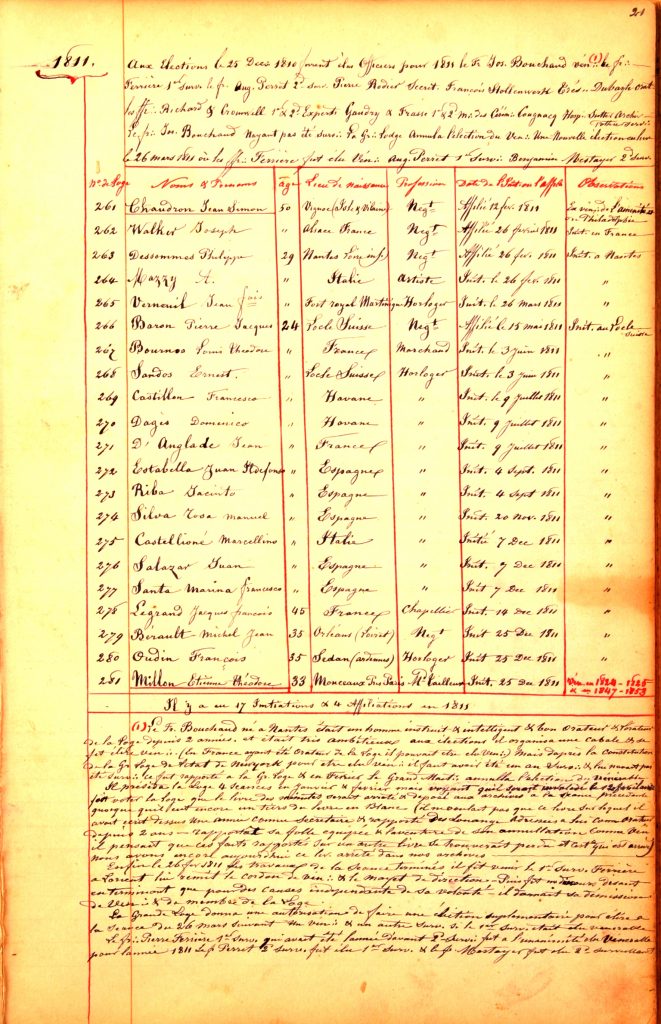 21
1811.
Aux Elections le 28 Dec 1810 furent élus Officiers pour 1811 le F. Jos. Bouchaud vén∴ (1) le f∴
Ferrière 1er Surv. le f. Aug. Perret 2d Sur. Pierre Rodier Secrét. François Stollenwerk Trés. Dubagh Orat
les ff∴ Richard & Cronwell 1er & 2d Experts Gaudry & Frasse 1er & 2d M. des Cérém. Cougnacq Hosp. Archiv
le f∴ Jos. Bouchaud N'ayant pas été Surv∴ la Gr∴ Loge Annula l'élection du Ven∴ Une Nouvelle élection eu lieu
le 26 mars 1811 où les ff∴ Ferrière fut élu Vén∴ Aug. Perret 1er Surv∴ Benjamin Mestayer 2d Surv.
No de Loge Noms & Prénoms âge Lieu de naissance Profession Date de l'Init ou l'affil. Observations
261 Chaudron Jean Simon 50 Vignoc (Isle & Vilaine) Negt Affilié 12 fev. 1811 La vén. de l'aménité de Philadelphie
262 Walker Joseph " Alsace France Negt Affilié 26 fevrier 1811 Init. en France
263 Dessommes Philippe 29 Nantes Loire inf. Negt Affilié 26 fev. 1811 Init. a Nantes
264 Mazzy A. " Italie Artiste Init. le 26 fev. 1811 "
265 Verneuil Jean fais " Fort royal Martinique Horloger Init. le 26 mars 1811 "
266 Baron Pierre Jacques 24 Locle Suisse Negt Affilié le 15 mai 1811 Init. au Locle Suisse
267 Bournos Louis Théodore " France Marchand Init. le 3 juin 1811 "
268 Sandos Ernest. " Locle Suisse Horloger Init. le 3 Juin 1811 "
269 Castillon Francesco " Havane " Init. le 9 juillet 1811 "
270 Dagès Domenico " Havane " Init. 9 juillet 1811 "
271 D'Anglade Jean " France " Init. 9 juillet 1811 "
272 Estabella Juan Ildefonso " Espagne " Init. 4 Sept. 1811 "
273 Riba Jacinto " Espagne " Init. 4 Sept 1811 "
274 Silva Rosa manuel " Espagne " Init. 20 Nov. 1811 "
275 Castellioné Marcellino " Italie " Initié 7 Dec 1811 "
276 Salazar Juan " Espagne " Init. 7 Dec 1811 "
277 Santa Marina francisco " Espagne " Init 7 Dec 1811 "
278 Legrand Jacques françois 45 France Chapellier Init. 14 Dec 1811 "
279 Bérault Michel Jean 35 Orléans (Loiret) Negt Init 25 Dec 1811 "
280 Oudin François 35 Sedan (ardennes) Horloger Init 25 Dec 1811 "
281 Millon Etienne Théodore 33 Monceaux Près Paris Md Tailleur Init. 25 Dec 1811 Vén en 1824-1825 & en 1847-1853
Il y a eu 17 Initiations & 4 Affiliations en 1811
(1) Le Fr. Bouchaud né a Nantes était un homme instruit & intelligent & bon Orateur & Orateur
de la Loge depuis 2 années. & était très ambitieux aux élections il organisa une Cabale & se
fit élire vén∴ (en France ayant été Orateur de la Loge il pouvait être élu Ven∴) Mais d'après la Constitution
de la Gr. Loge de l'etat de Newyork pour être élu vén∴ il faut avoir été un an Surv∴ & lui n'avait pas
été Surv∴ ce fut rapporté a la Gr. Loge & en Fevrier le Grand Maît∴ annulla l'élection du vénérable
Il présida la Loge 4 séances en Janvier & fevrier mais voyant qu'il serait le 12 fevrier
fit voter la Loge que le livre des minutes serait arrêté & déposé aux archives la séance précédente
quoique qu'il eut encore un tiers du livre en Blanc (il ne voulait pas que le livre sur lequel il
avait écrit dessus Une année comme Secrétaire & rapporté des Louange Adressées a lui comme Orateur
depuis 2 ans — rapportat sa folle équipée & l'aventure de son annullation comme Ven
il pensait que ces faits rapportés sur un autre livre se trouverait perdu et c'est qui est arrivé)
nous avons encore aujourd'hui ce liv. arrêté dans nos archives
Enfin le 26 fev. 1811 les travaux de la séance terminés il fit venir le 1er Surv. Ferrière
a l'orient lui remit le cordon de ven∴ & le maillet de direction. Puis fit un discours disant
en terminant que pour des causes indépendante de sa volonté il donnait sa démission
de Vén∴ & de membre de la Loge
La Grande Loge donna une autorisation de faire une élection suplementaire pour élire a
la séance du 26 mars suivant un vén∴ & un autre Surv. si le 1er Surv. était élu vénérable
Le f∴ Pierre Ferrière 1er Surv. qui avait été l'année d'avant 2d Surv∴ fut a l'unanimité élu Venerable
pour l'année 1811 le f Perret 2d Surv. fut élu 1er Surv. & le f∴ Mestayer fut élu 2d Surveillant